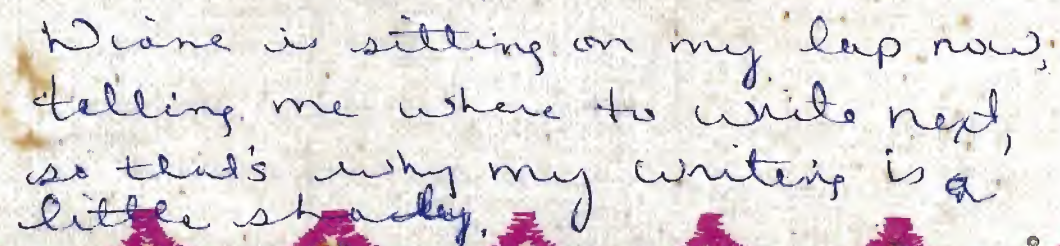 Diane is sitting on my lap now,
telling me where to write next,
so that's why my writing is a
little shakey.